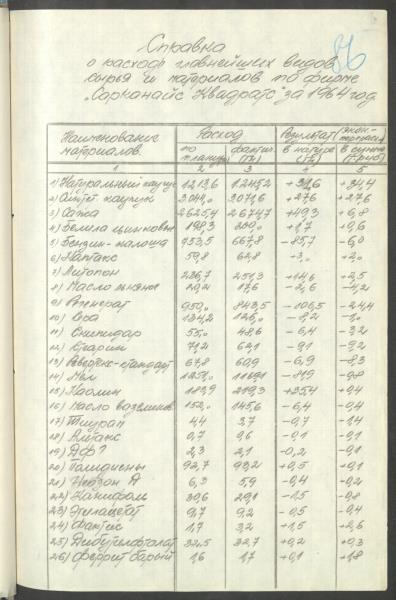 86
Справка
о расходе главнейших видов
сырья и материалов по фирме
"Сарканайс Квадратс" за 1964 год.
Наименование материалов. Расход Результат в натуре (тн)
по плану (тн) фактич. (тн)
1. 2 3 4 5
1) Натуральный каучук 1213,6 1245,2 +31,6 +34,4
2) каучук 3044,0 3071,6 +27,6 +27,6
3) Сажа 2625,4 2674,7 +49,3 +6,8
4) Белила цинковые 198,3 200,0 +1,7 +0,6
5) Бензин-калоша 953,5 667,8 -85,7 -6,0
6) Каптакс 59,8 62,8 +3,0 +2,0
7) Литопон 236,7 251,3 +14,6 +2,5
8) Масло 20,2 17,6 -2,6 -4,2
9) Регенерат 950,0 843,5 -106,5 -24,4
10) Сера 134,2 126,0 -8,2 -1,0
11) Скипидар 55,0 48,6 -6,4 -3,2
12) Стеарин 71,2 62,1 -9,1 -9,2
13) 67,8 60,9 -6,9 -8,3
14) Мел 1251,0 1169,1 -81,9 -0,8
15) Каолин 183,9 219,3 +35,4 +0,4
16) Масло вазелинов 152,0 145,6 -6,4 -0,4
17) Тиурам 4,4 3,7 -0,7 -1,4
18) Альтакс 0,7 0,6 -0,1 -0,1
19) ДФГ 2,3 2,1 -0,2 -0,1
20) 92,7 93,2 +0,5 +0,1
21) Неозон Д 6,3 5,9 -0,4 -0,2
22) Канифоль 30,6 29,1 -1,5 -0,8
23) Этилацетат 9,7 9,2 -0,5 -0,4
24) Фактис 1,7 3,2 +1,5 +2,6
25) Дибутилфталат 32,5 32,7 +0,2 +0,3
26) Феррит барий 1,6 1,7 +0,1 +1,8